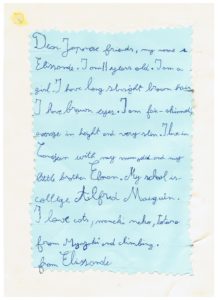 Dear Japanese friends, my name is
Elissonde. I am 11 years old. I am a
girl. I have long straight brown hair.
I have brown eyes. I am fair-skinned,
average in height and very slim. I live in
with my mum, dad and my
little brother. My school is
college Alfred Mauguin.
I love cats, neko,
from and climbing.
from Elissonde